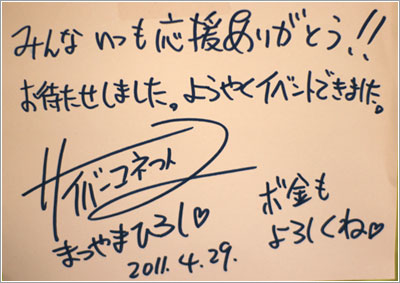 みんな いつも 応援ありがとう!!
お待たせしました。ようやくイベントできました。
サイバーコネクト
まつやまひろし♡
2011.4.29.
ボ金も
よろしくね♡